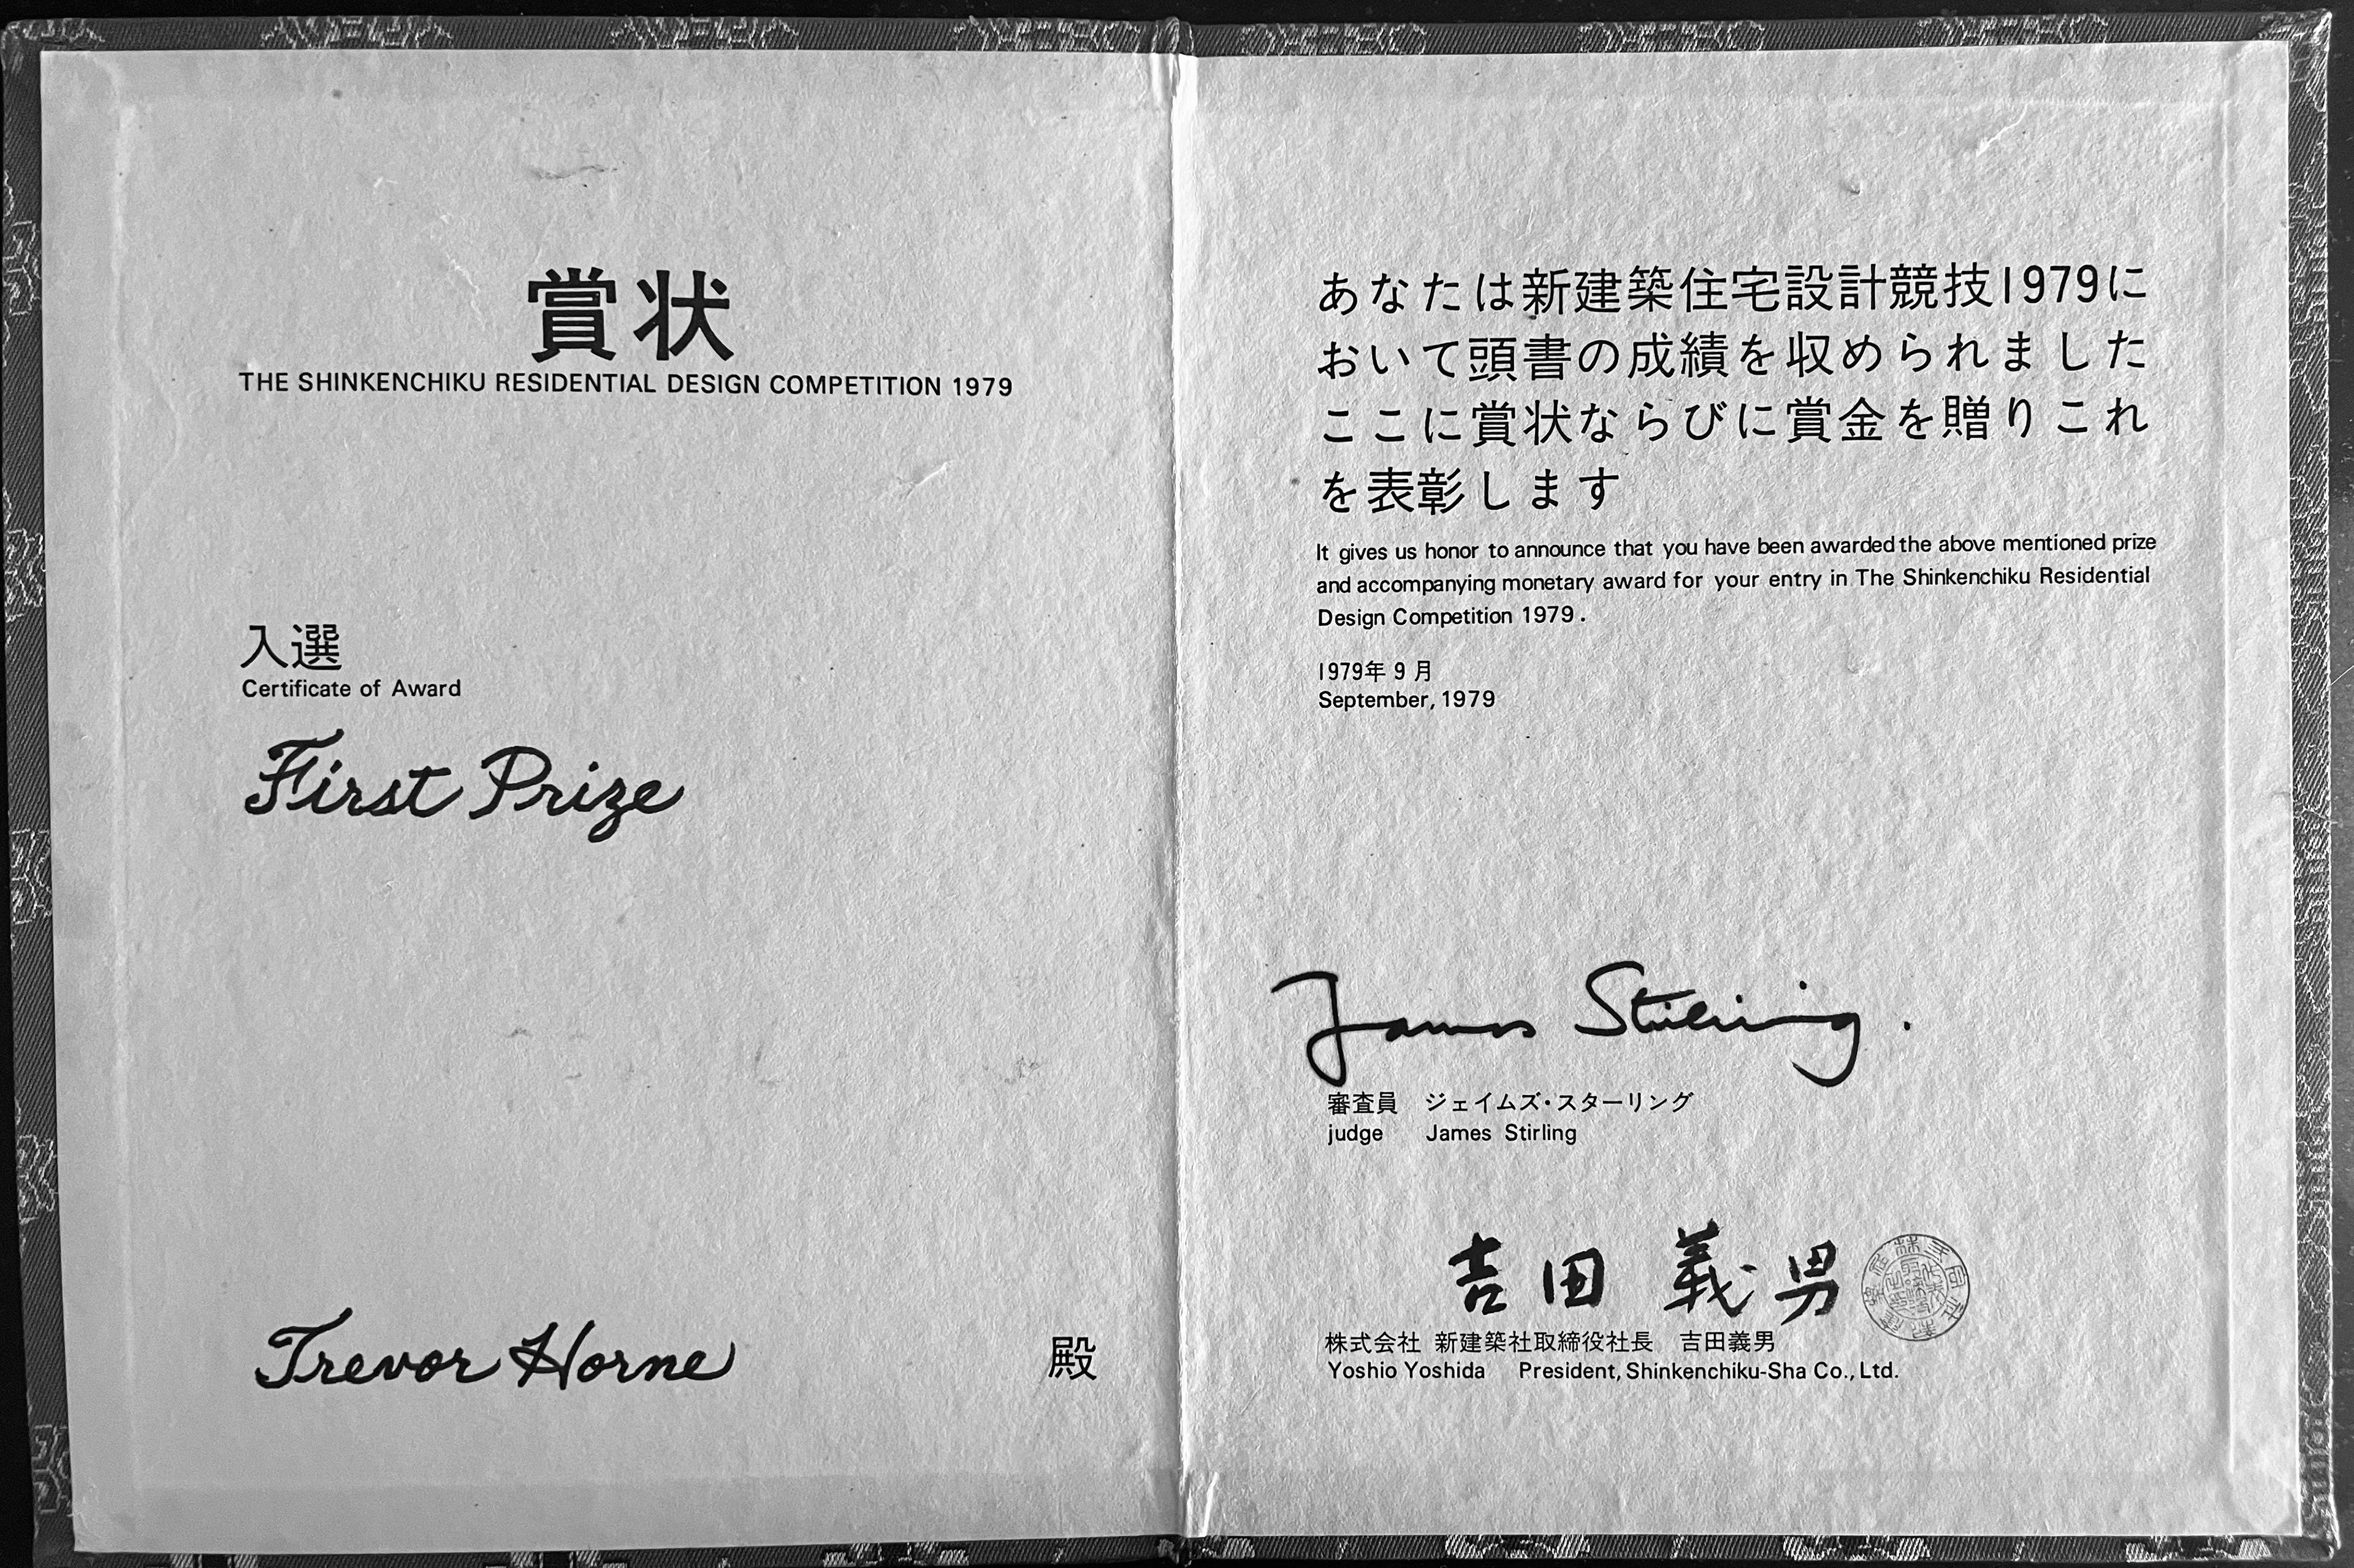 賞状
THE SHINKENCHIKU RESIDENTIAL DESIGN COMPETITION 1979
入選
Certificate of Award
First Prize
Trevor Horne 殿
あなたは新建築住宅設計競技1979に
おいて頭書の成績を収められました
ここに賞状ならびに賞金を贈りこれ
を表彰します
It gives us honor to announce that you have been awarded the above mentioned prize
and accompanying monetary award for your entry in The Shinkenchiku Residential
Design Competition 1979.
1979年9月
September, 1979
James Stirling.
審査員 ジェイムズ・スターリング
judge James Stirling
吉田 義男
株式会社 新建築社取締役社長 吉田義男
Yoshio Yoshida President, Shinkenchiku-Sha Co., Ltd.